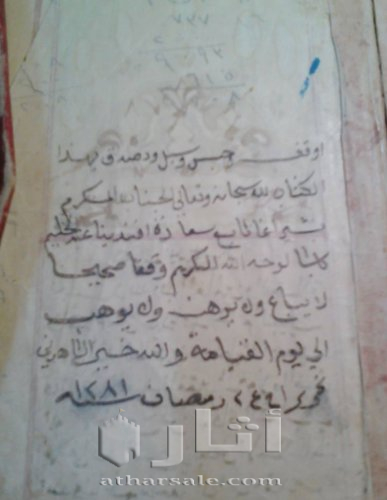 ٧٣٧
اوقف وحبس وسبل وتصدق بهذا
الكتاب لله سبحانه وتعالى الجناب المكرم
بشير اغا تابع سعادة افندينا عبد الحليم
باشا لوجه الله الكريم وقفا صحيحا
لا يباع ولا يرهن ولا يوهب
الى يوم القيامة والله خير
رمضان سنة ١٢٨١
أثار
atharsale.com